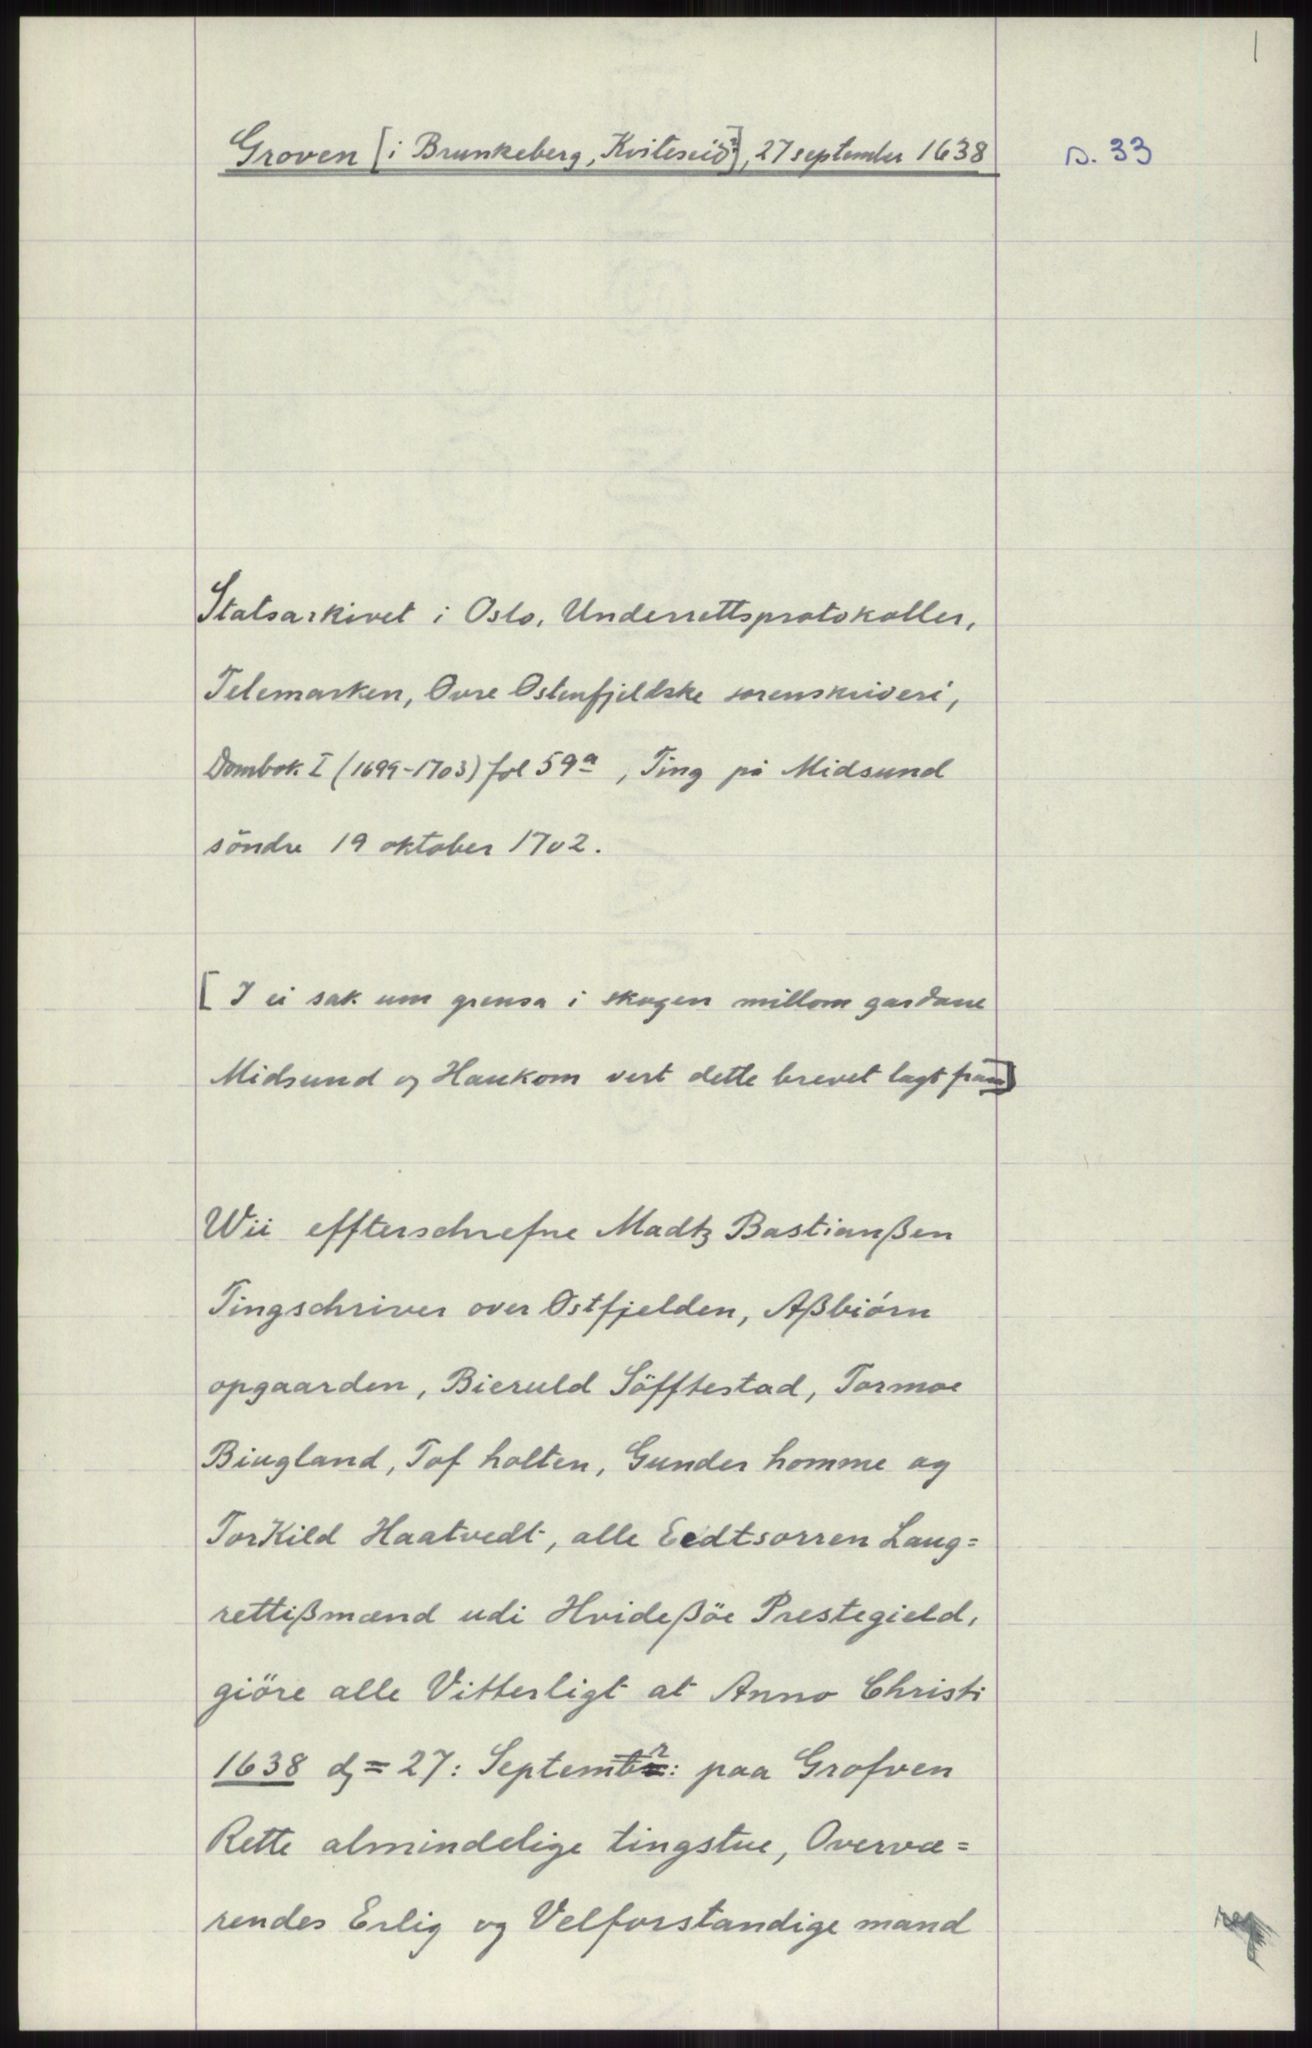 1
Groven [i Brunkeberg, Kviteseid?], 27 september 1638
s. 33
Statsarkivet i Oslo, Underrettsprotokoller,
Telemarken, Øvre Østenfjeldske sorenskriveri,
Dombok I (1699-1703) fol 59a, Ting på Midsund
söndre 19 oktober 1702.
[ I ei sak um grensa i skogen millom gardane
Midsund og Haukom vert dette brevet lagt fram]
Wii effterschrefne Madtz Bastianßen
Tingschriver over Østfjelden, Aßbiörn
opgaarden, Bieruld Söfftestad, Tormoe
Biugland, Tof holten, Gunder homme og
TorKild Haatvedt, alle Eedtsorren Laug=
rettißmænd udi Hvideßöe Prestegield,
giöre alle Vitterligt at Anno Christi
1638 dj = 27: Septembr: paa Grofven
Rette almindelige tingstue, Overvæ=
rendes Erlig og Velforstandige mand
reg